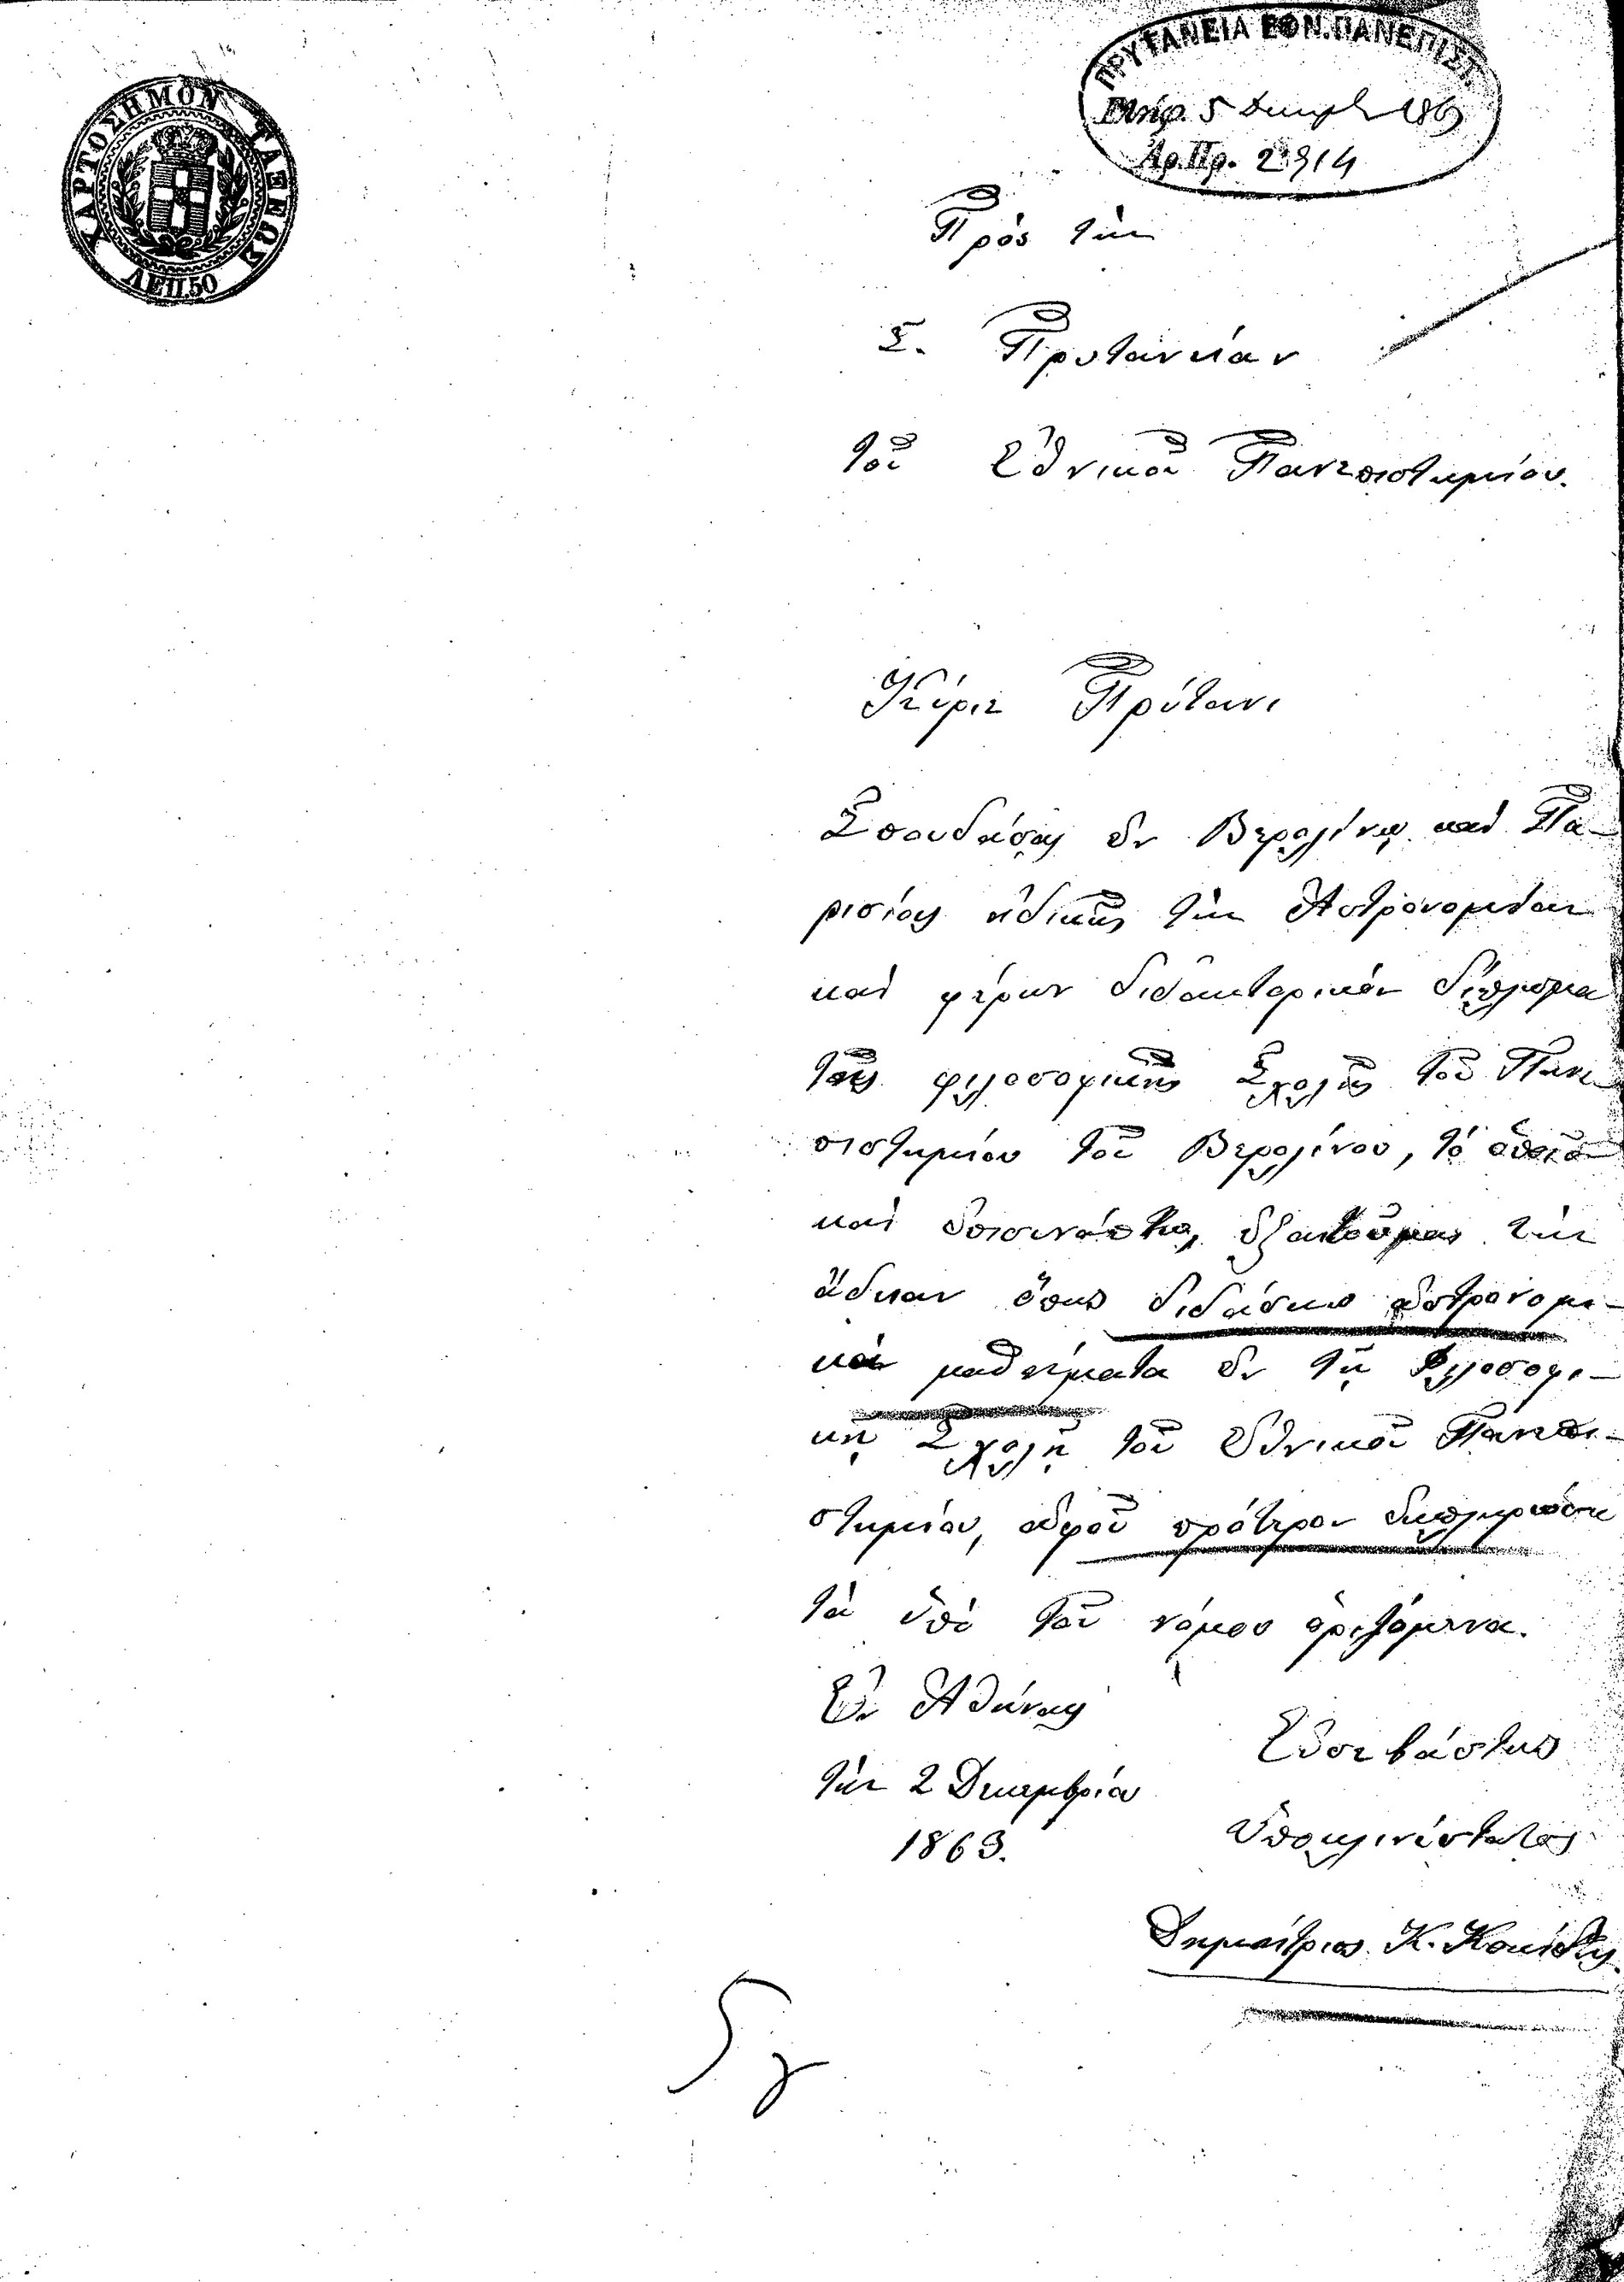 ΧΑΡΤΟΣΗΜΟΝ ΤΑΞΕΩΣ
ΛΕΠ. 50
ΠΡΥΤΑΝΕΙΑ ΕΘΝ. ΠΑΝΕΠΙΣΤ.
5 186
Ἀρ. Πρ. 2914
Πρὸς τὴν
Σ. Πρυτανείαν
τοῦ Ἐθνικοῦ Πανεπιστημείου.
Κύριε Πρύτανι
Σπουδάσας ἐν Βερολίνῳ καὶ Πα-
ρισίοις εἰδικῶς τὴν Ἀστρονομείαν
καὶ φέρων διδακτορικὸν δίπλωμα
τῆς φιλοσοφικῆς Σχολῆς τοῦ Πανε
πιστημείου τοῦ Βερολίνου, τὸ ὁποῖο
καὶ ἐπισυνάπτω, ἐξαιτοῦμαι τὴν
ἄδειαν ὅπως διδάσκω ἀστρονομι-
κὰ μαθήματα ἐν τῇ Φιλοσοφι-
κῇ Σχολῇ τοῦ Ἐθνικοῦ Πανεπι-
στημείου, ἀφοῦ πρότερον ἐκπληρώσω
τὰ ὑπὸ τοῦ νόμου ὁριζόμενα.
Ἐν Ἀθήναις
τὴν 2 Δεκεμβρίου
1863.
Εὐσεβάστως
Ὑποκλινέστατος
Δημήτριος Κ. Κοκίδης.